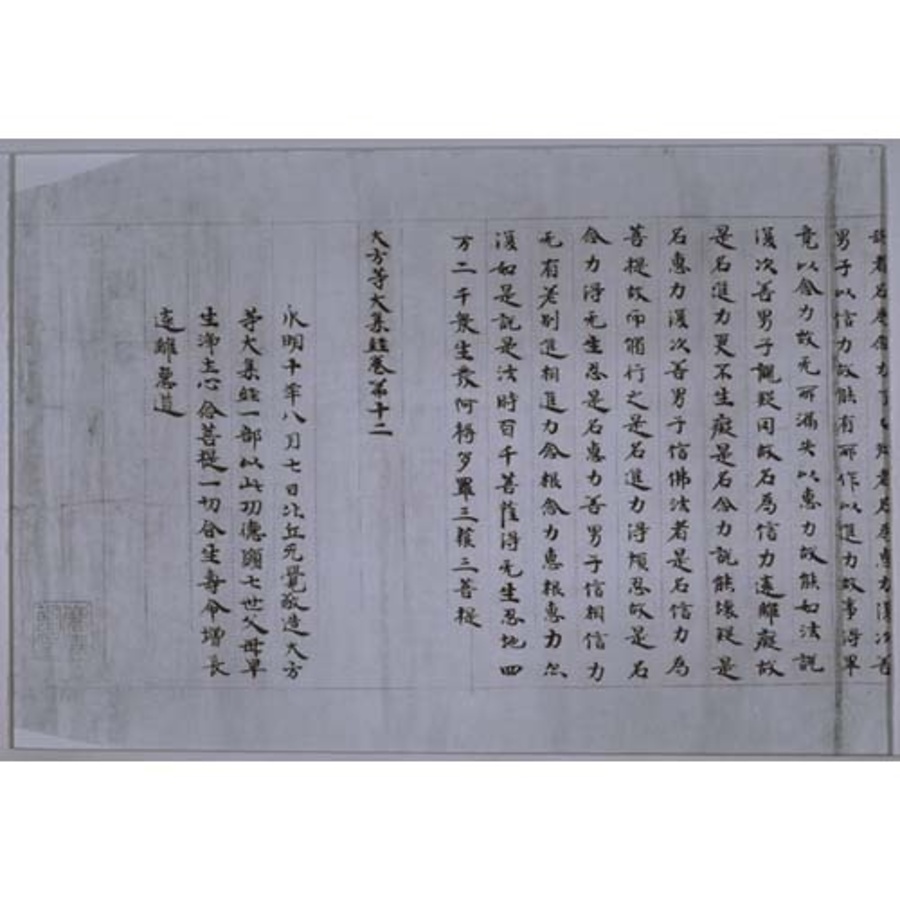 男子以信力故能有所作以進力故事得畢
竟以念力故无所漏失以惠力故能如法說
復次善男子親疑因故名為信力遠離癡故
是名進力更不生癡是名念力說能壞疑是
名惠力復次善男子信佛法者是名信力為
菩提故而脩行之是名進力得順忍故是名
念力得无生忍是名惠力善男子信相信力
无有差別進相進力念根念力惠根惠力亦
復如是說是法時百千菩薩得无生忍地四
万二千衆生發阿耨多羅三藐三菩提
大方等大集経卷第十二
永明十年八月七日比丘无覺敬造大方
等大集経一部以此功德願七世父母早
生淨土心念菩提一切含生壽命增長
遠離惡道